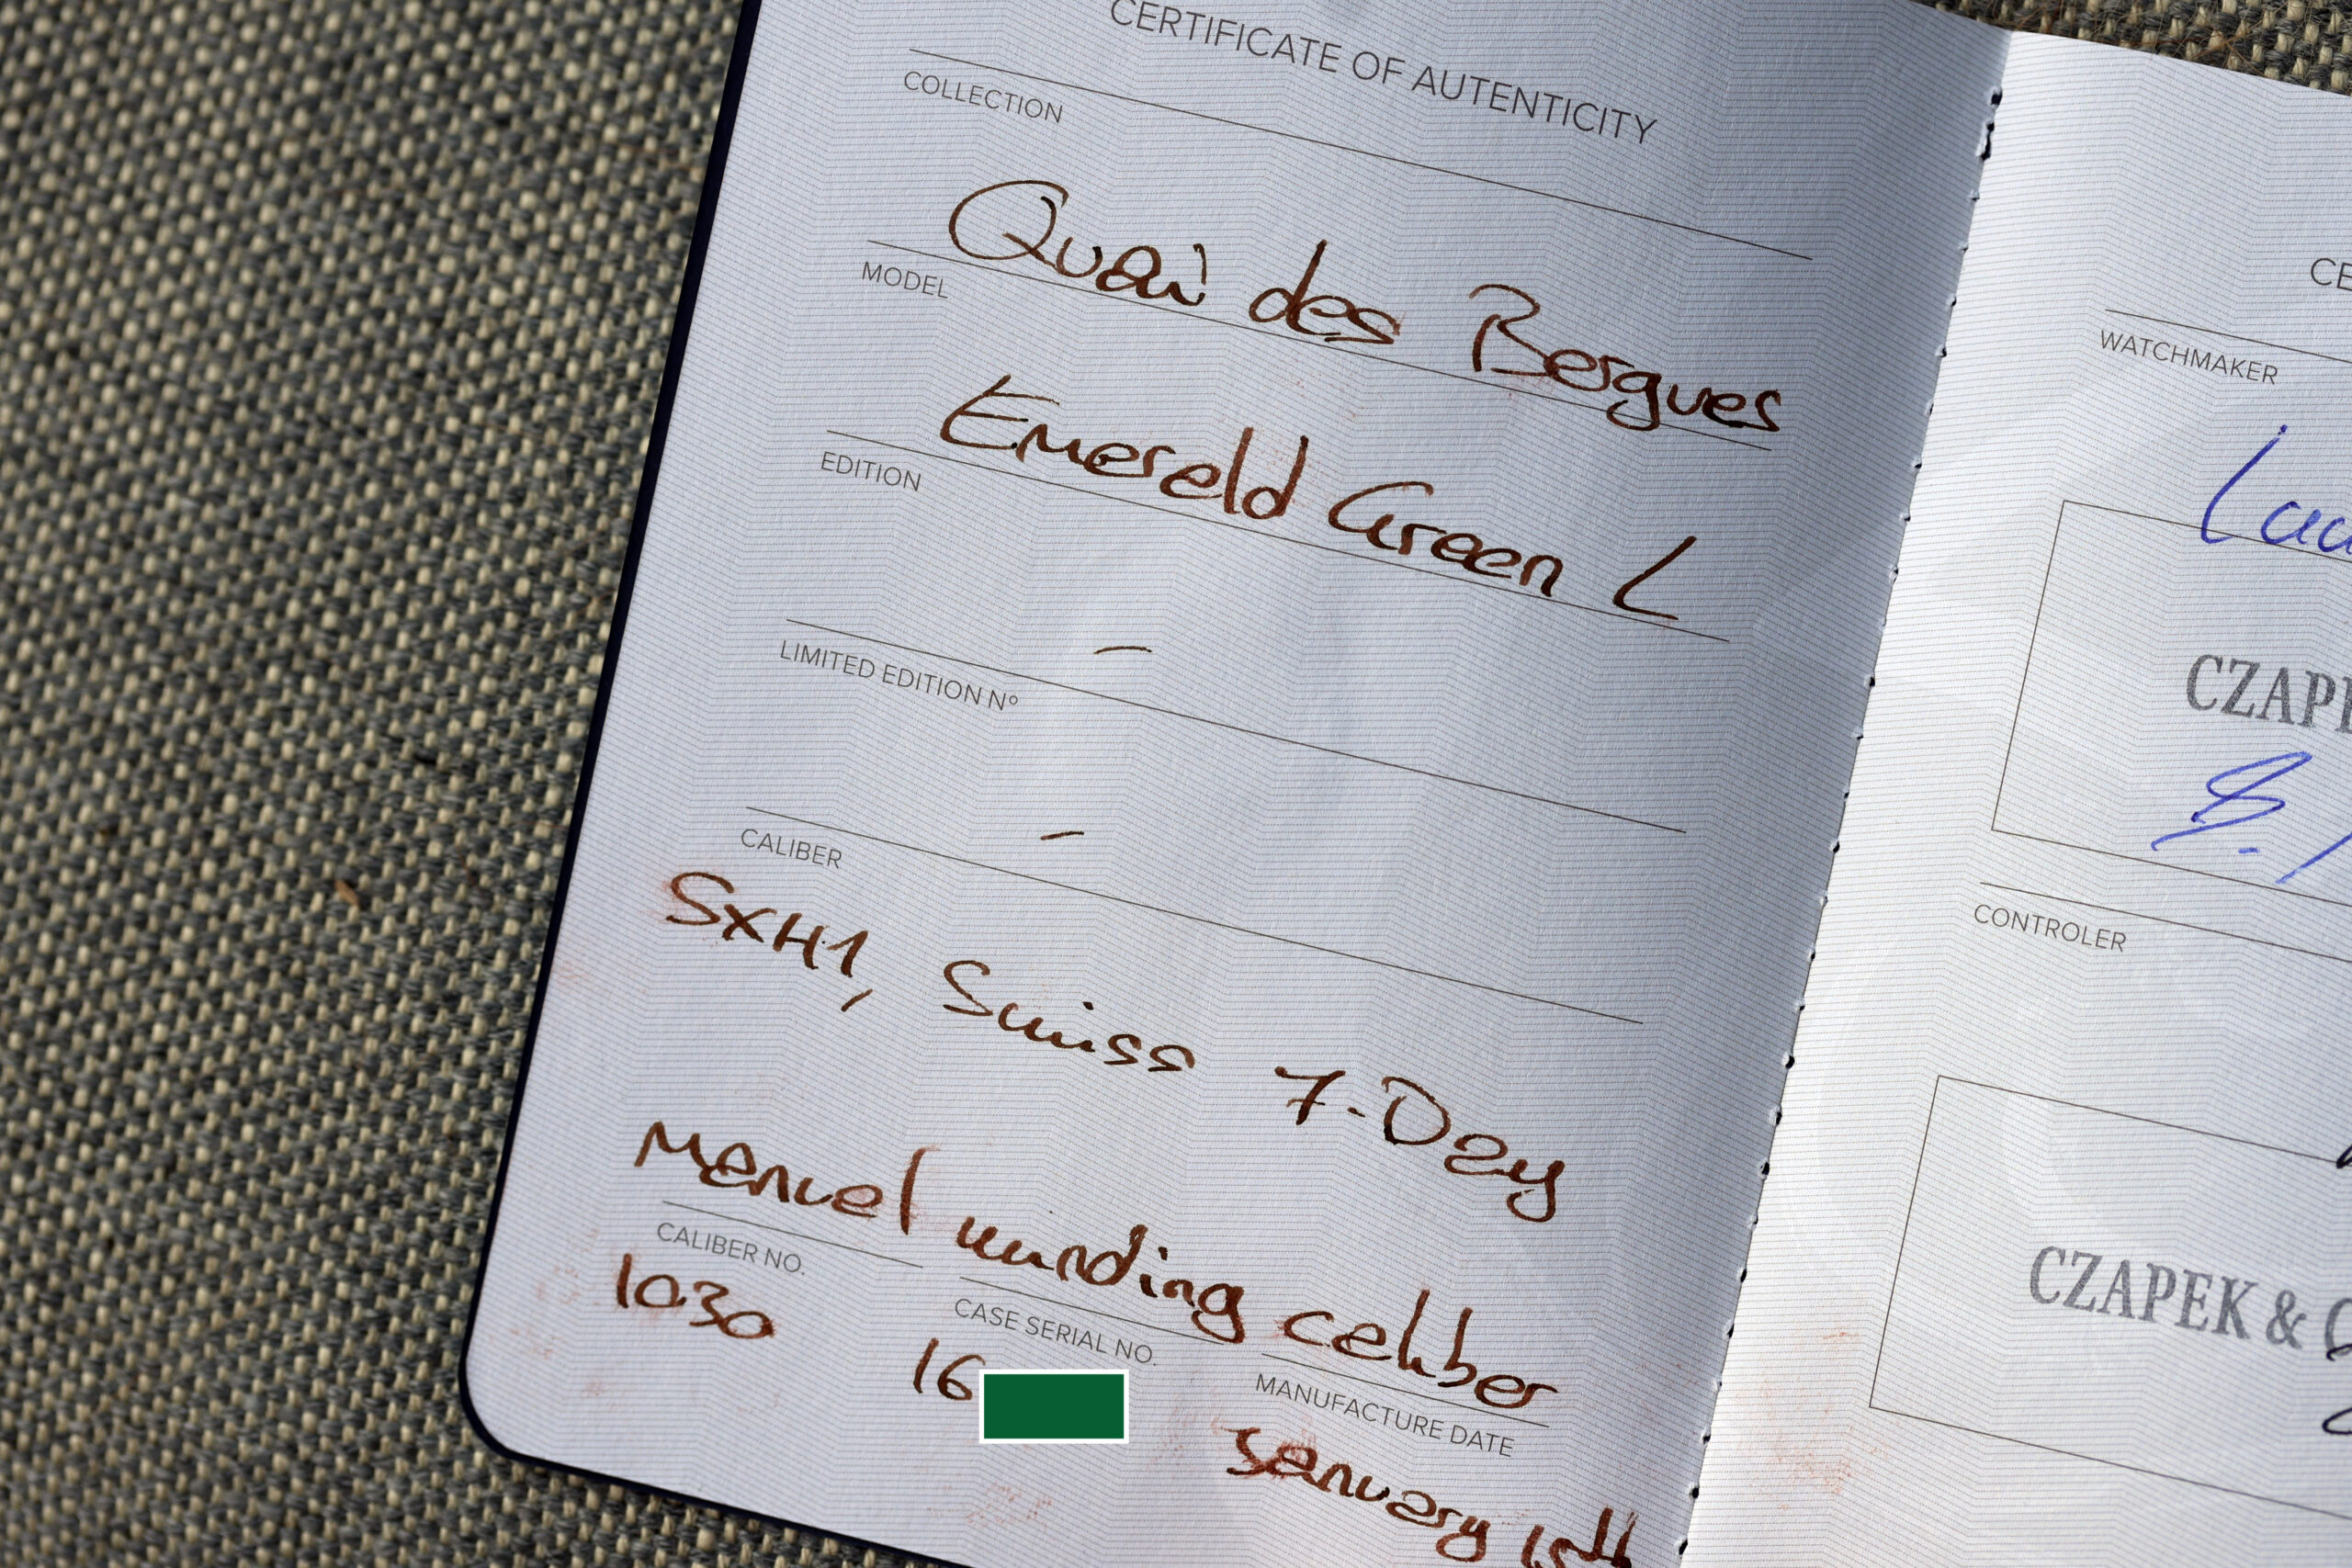 CERTIFICATE OF AUTENTICITY
COLLECTION
Quai des Bergues
MODEL
Emerald Green L
EDITION
-
LIMITED EDITION Nº
-
CALIBER
SXH1, Swiss 7-Day
Manuel winding caliber
CALIBER NO.
1030
CASE SERIAL NO.
16
MANUFACTURE DATE
January 15th
CE
WATCHMAKER
CZAPE
CONTROLER
CZAPEK &